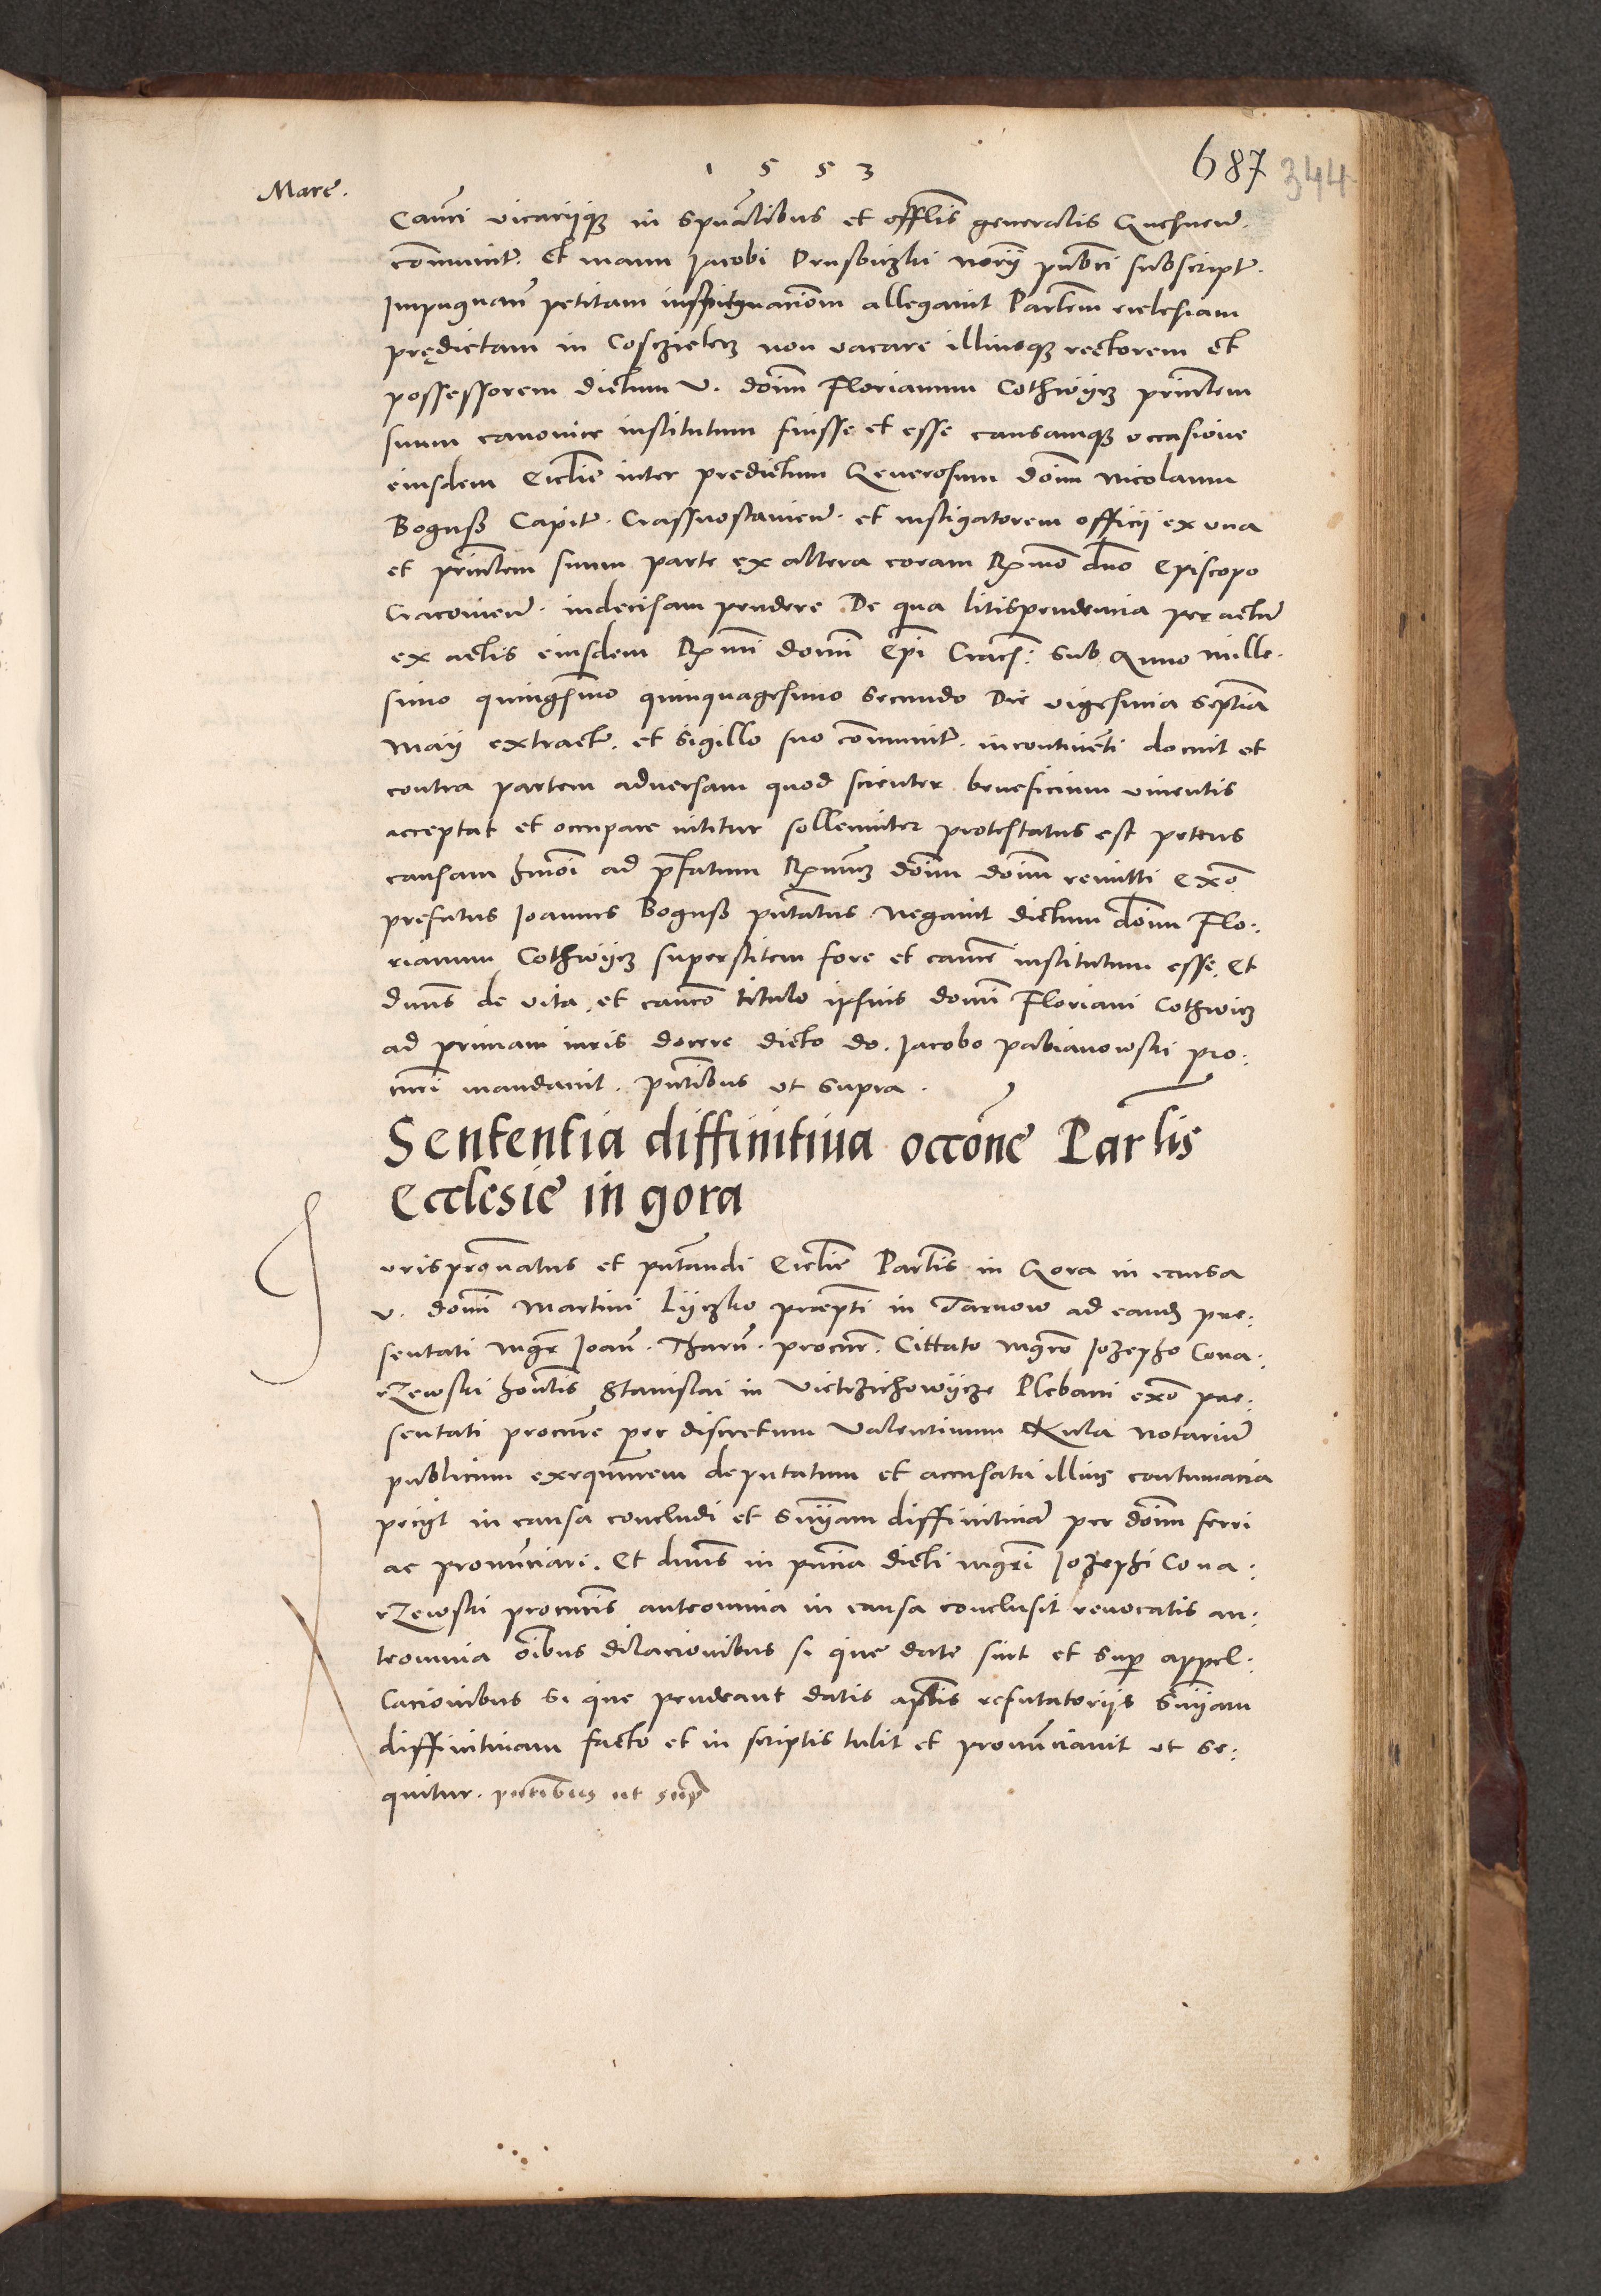 1553
687 344
Marē.
Canci vicarijq̃ in spũalibus et offlis generalis Gnesnen̄.
communit̃. Et manu Jacobi Drusbiczki norij publici subscript̃.
Impugnan̄ petitam  allegavit Parlem ecclesiam
prędictam in Cosczieletz non vacare illiusq̃ rectorem et
possessorem dictum v. doim Florianum Cothwijcz princlem
suum canonice institutum fuisse et esse causamq̃ occasione
eiusdem Ecclie inter predictum Generosum doim Nicolaum
Boguss Capit̃. Crassnostamien̄. et instigatorem officij ex una
et princlem suum parte ex altera coram Rx̃mo dno Episcopo
Cracovien̄. indecisam pendere. De qua litispendencia per actũ
ex actis eiusdem Rx̃mi domi Epi Cracn̄: sub Anno mille-
simo quingsmo quinquagesimo secundo Die vigesima septĩa
Maij extract̃. et sigillo suo communit̃. incontinenti docuit et
contra partem adversam quod scienter beneficium viventis
acceptat et occupare nititur sollenniter protestatus est petens
causam hmoi ad pr̃fatum Rx̃mum doim doim remitti Exõ
prefatus Joannes Boguss pntatus negavit dictum doim Flo:
rianum Cothwijcz superstitem fore et canc̃e institutum esse. Et
dnus de vita et canco titulo ipsius domi Floriani Cothwicz
ad primam iuris docere dicto do. Jacobo Pabianowski pro:
curi mandavit. pntibus ut supra.
Sententia diffinitiua occõne Parlis
Ecclesie in gora
Jurispronatus et pntandi Ecclie Parlis in Gora in causa
v. domi Martini Lyczko prepti in Tarnow ad eand̃ pre:
sentati mgr̃ Joan̄. Tharn̄. procur̃. Cittato mgro Jozepho Cona:
rzewski hontis Stanislai in Vietrzichowycze Plebani exõ pre:
sentati procure per discretum Valentinum Kula notariũ
publicum exequutorem deputatum et accusata illius contumacia
pecijt in causa concludi et snijam diffinitivã per doim ferri
ac pronunciari. Et dnus in pncia dicti mgri Jozephi Cona:
rzewski procuris anteomnia in causa conclusit revocatis an:
teomnia oibus dilacionibus si que date sint et sup̃ appel:
lacionibus si que pendeant datis aplis refutatorijs snijam
diffinitivam facto et in scriptis tulit et pronunciavit ut se:
quitur. pntibus ut sup̃